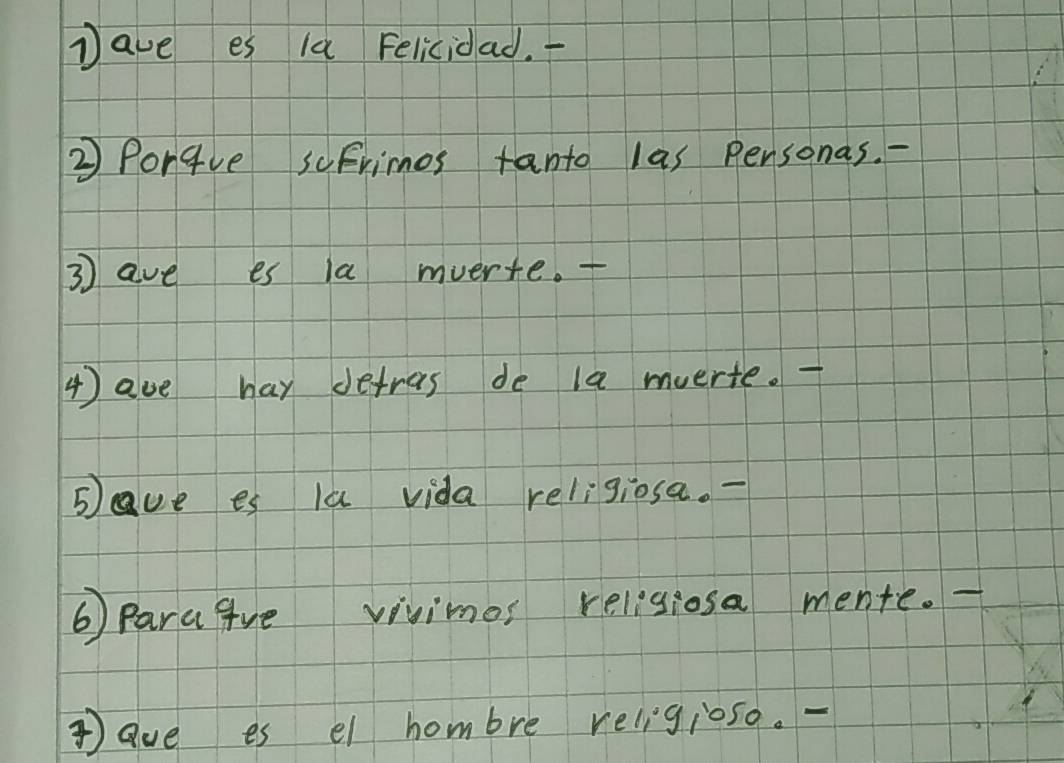 1) Que es la Felicidad.-
2) Porque sufrimos tanto las Personas.-
3) Que es la muerte.-
4) Que hay detras de la muerte.-
5) Que es la vida religiosa.-
6) Para que vivimos religiosa mente.-
7) Que es el hombre religioso.-